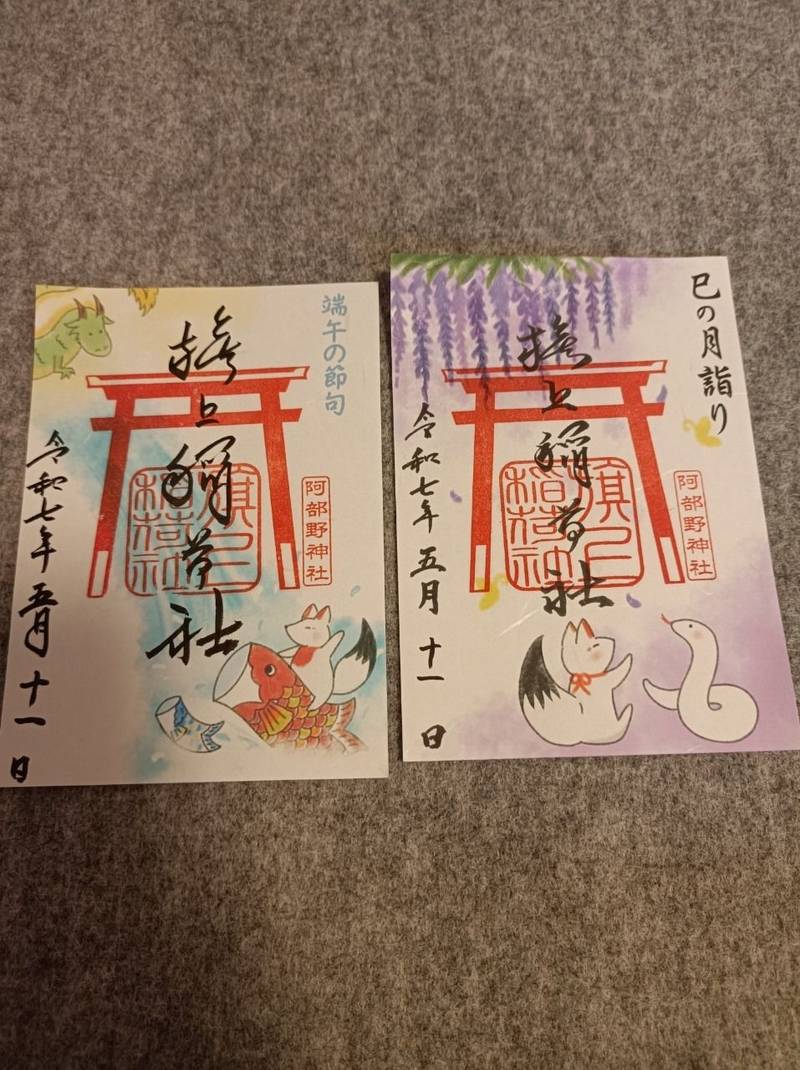 端午の節句
阿部野神社
旗上稲荷社
旗上
稲荷社
令和七年五月十一日
巳の月詣り
阿部野神社
旗上稲荷社
旗上
稲荷社
令和七年五月十一日